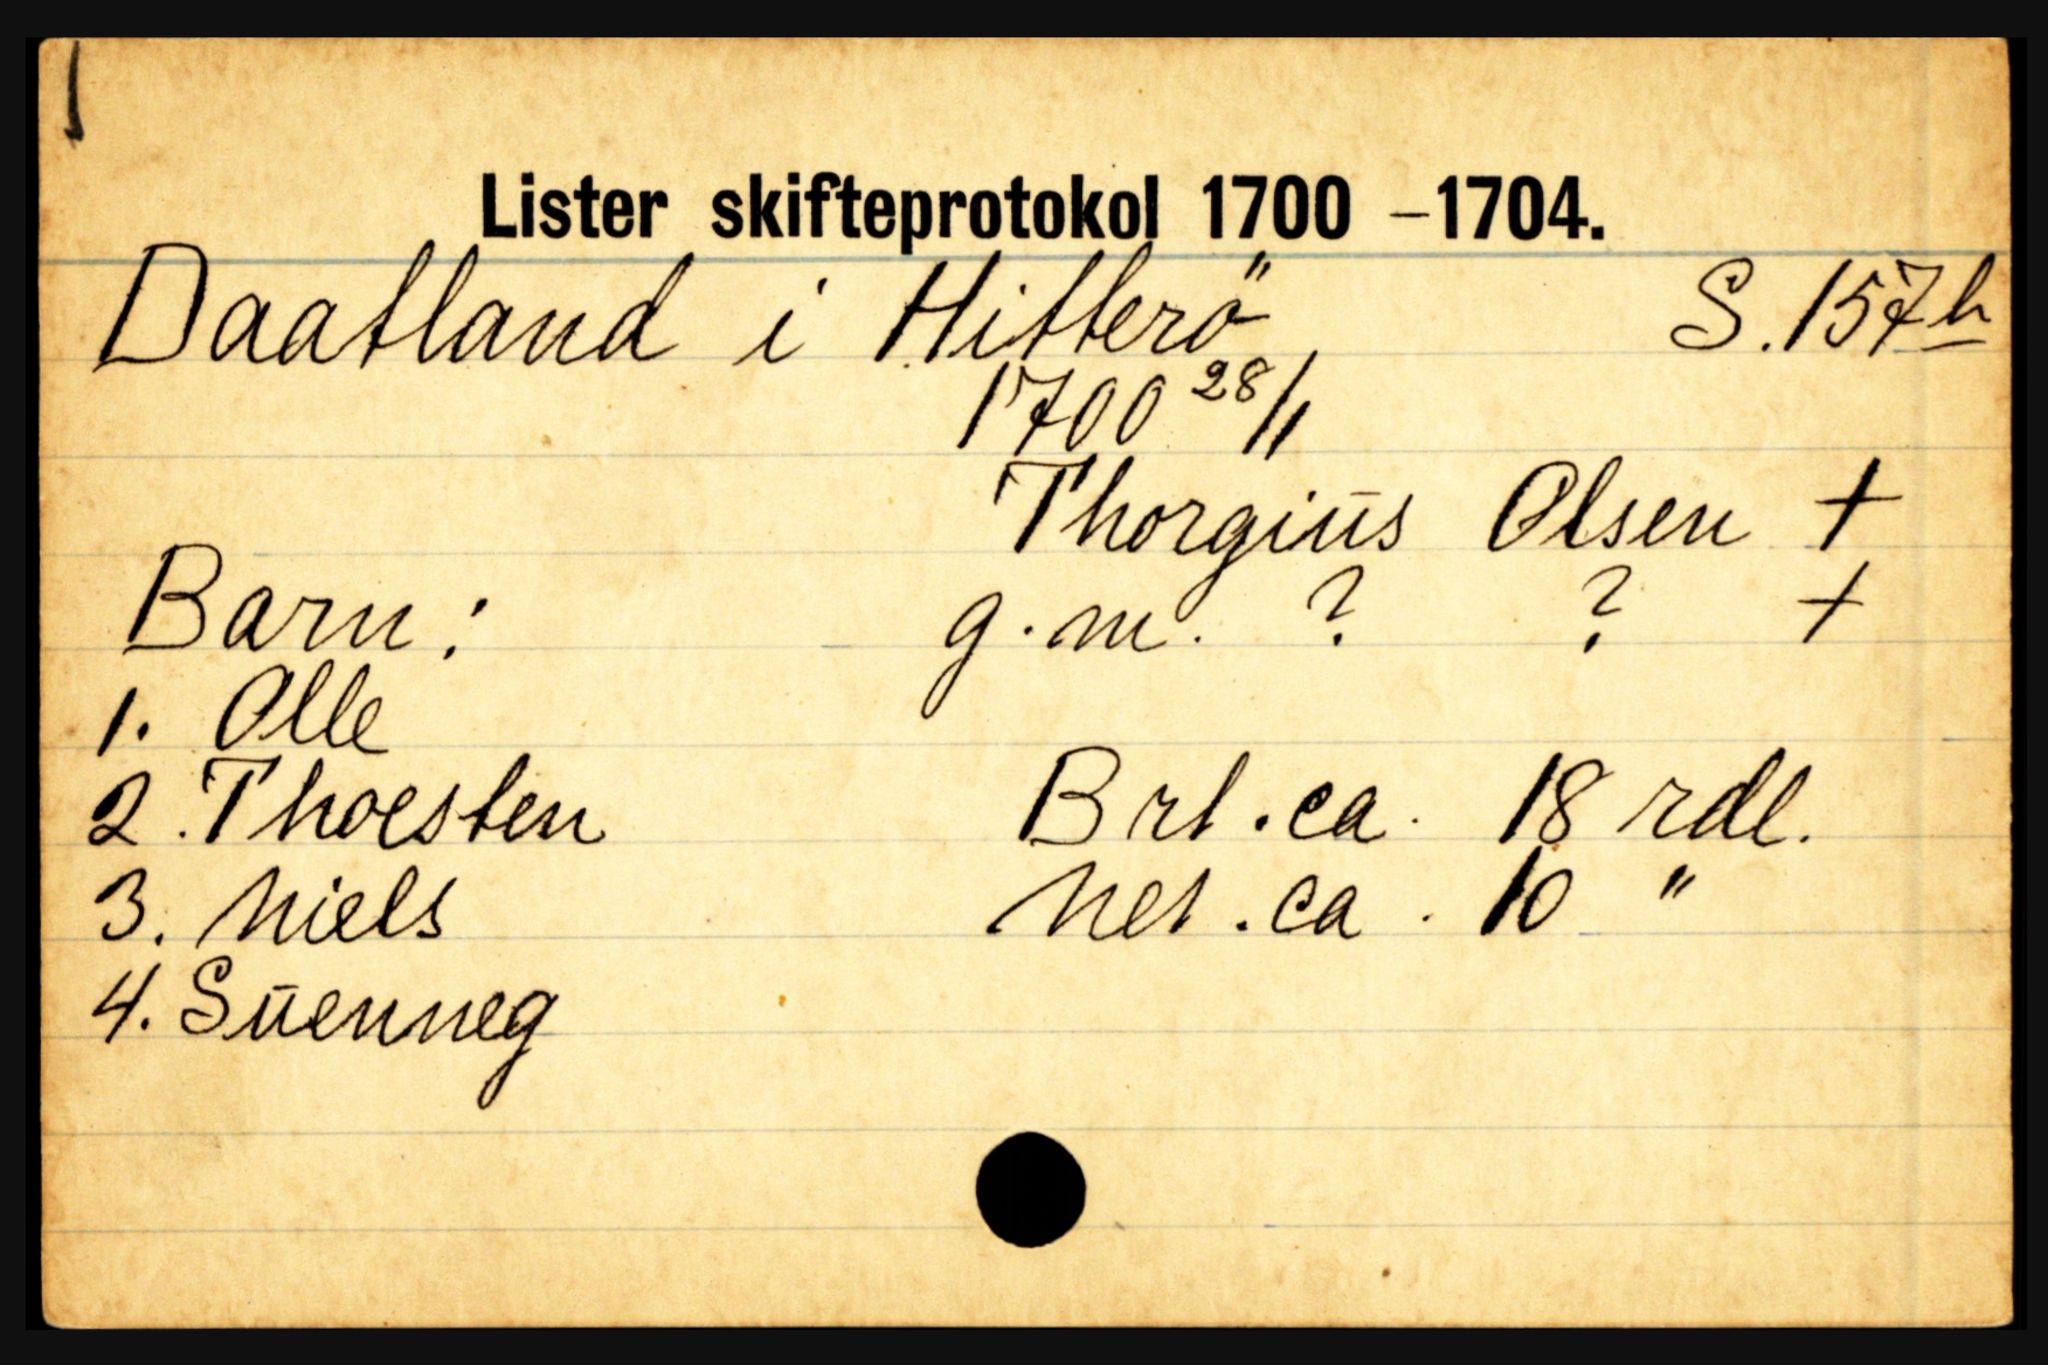 Lister skifteprotokol 1700 –1704.
Daatland i Hitterö S. 157b
1700 28/11
Thorgiüs Olsen +
Barn: g.m. ? ? +
1. Olle
2. Thoesten Brt. ca. 18 rdl.
3. Niels Net. ca. 10 "
4. Süenneg